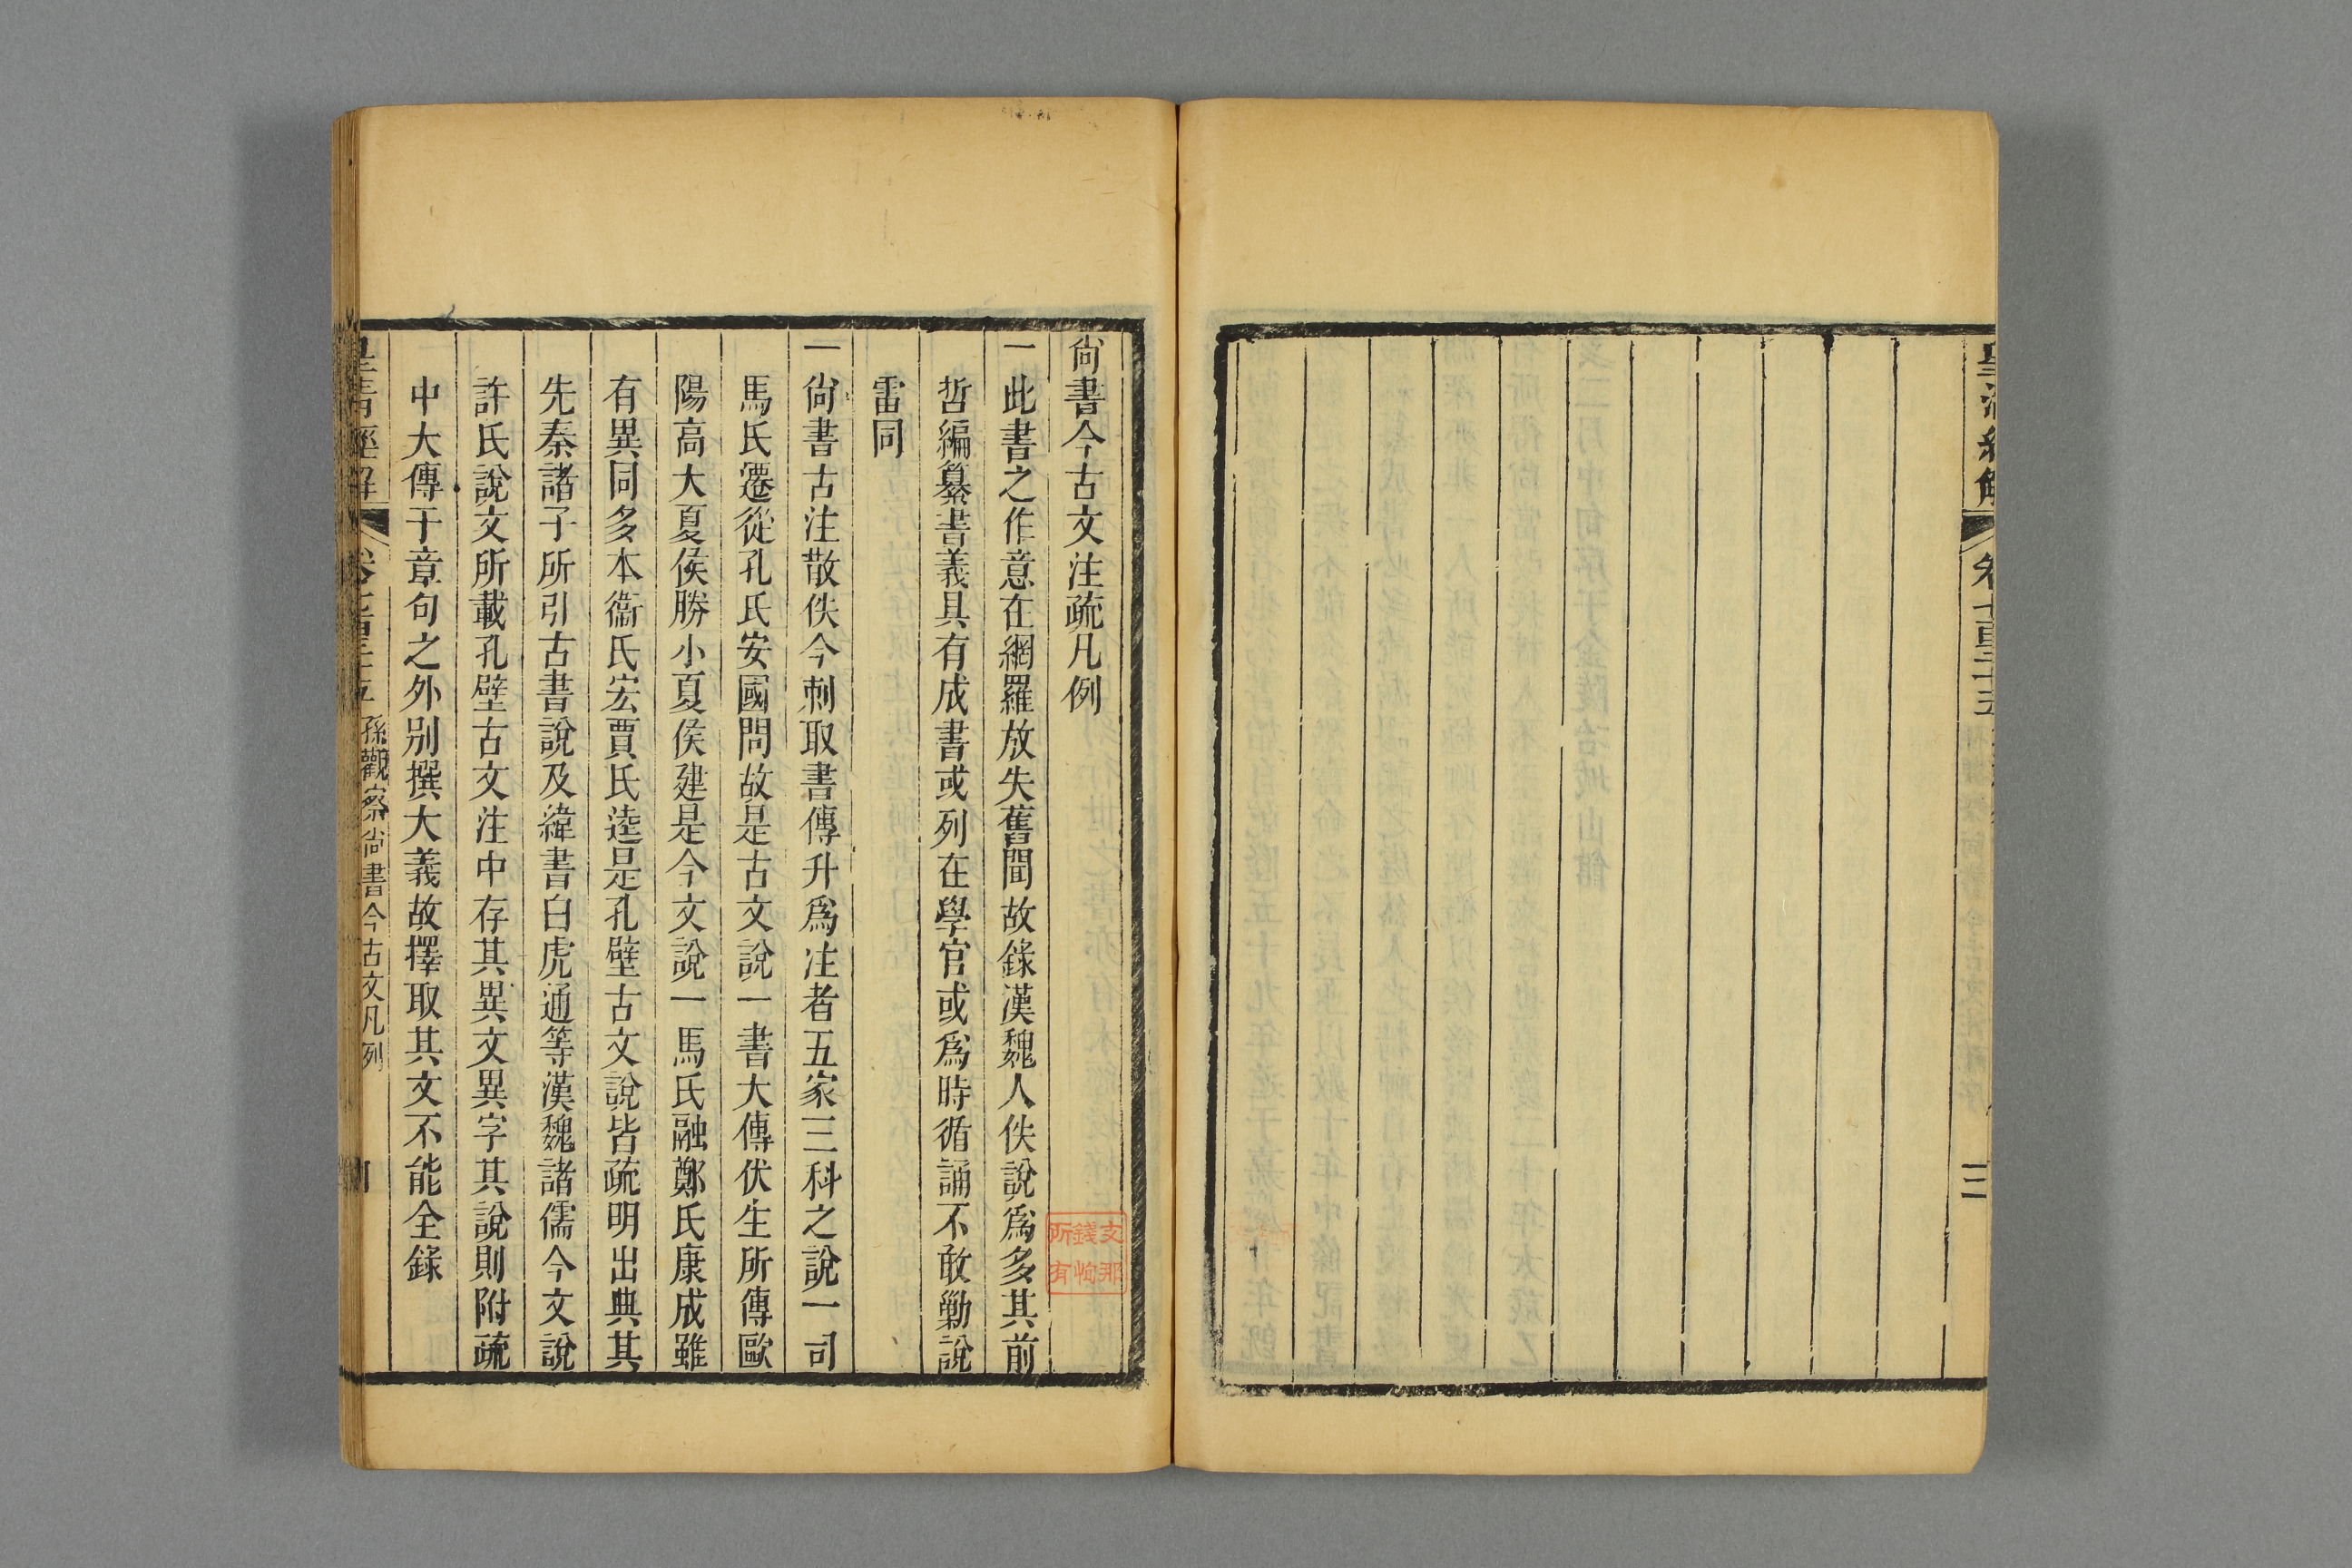 皇清經解
卷七百三十五
三
尙書今古文注疏凡例
一此書之作意在網羅放失舊聞故錄漢魏人佚說爲多其前
哲編纂書義具有成書或列在學官或爲時循誦不敢勦說
雷同
一尙書古注散佚今刺取書傳升爲注者五家三科之說一司
馬氏遷從孔氏安國問故是古文說一書大傳伏生所傳歐
陽高大夏侯勝小夏侯建是今文說一馬氏融鄭氏康成雖
有異同多本衞氏宏賈氏逵是孔壁古文說皆疏明出典其
先秦諸子所引古書說及緯書白虎通等漢魏諸儒今文說
許氏說文所載孔壁古文注中存其異文異字其說則附疏
中大傳于章句之外別撰大義故擇取其文不能全錄
皇清經解
卷七百三十五 孫觀察尙書今古文凡例
支那
錢恂
所有